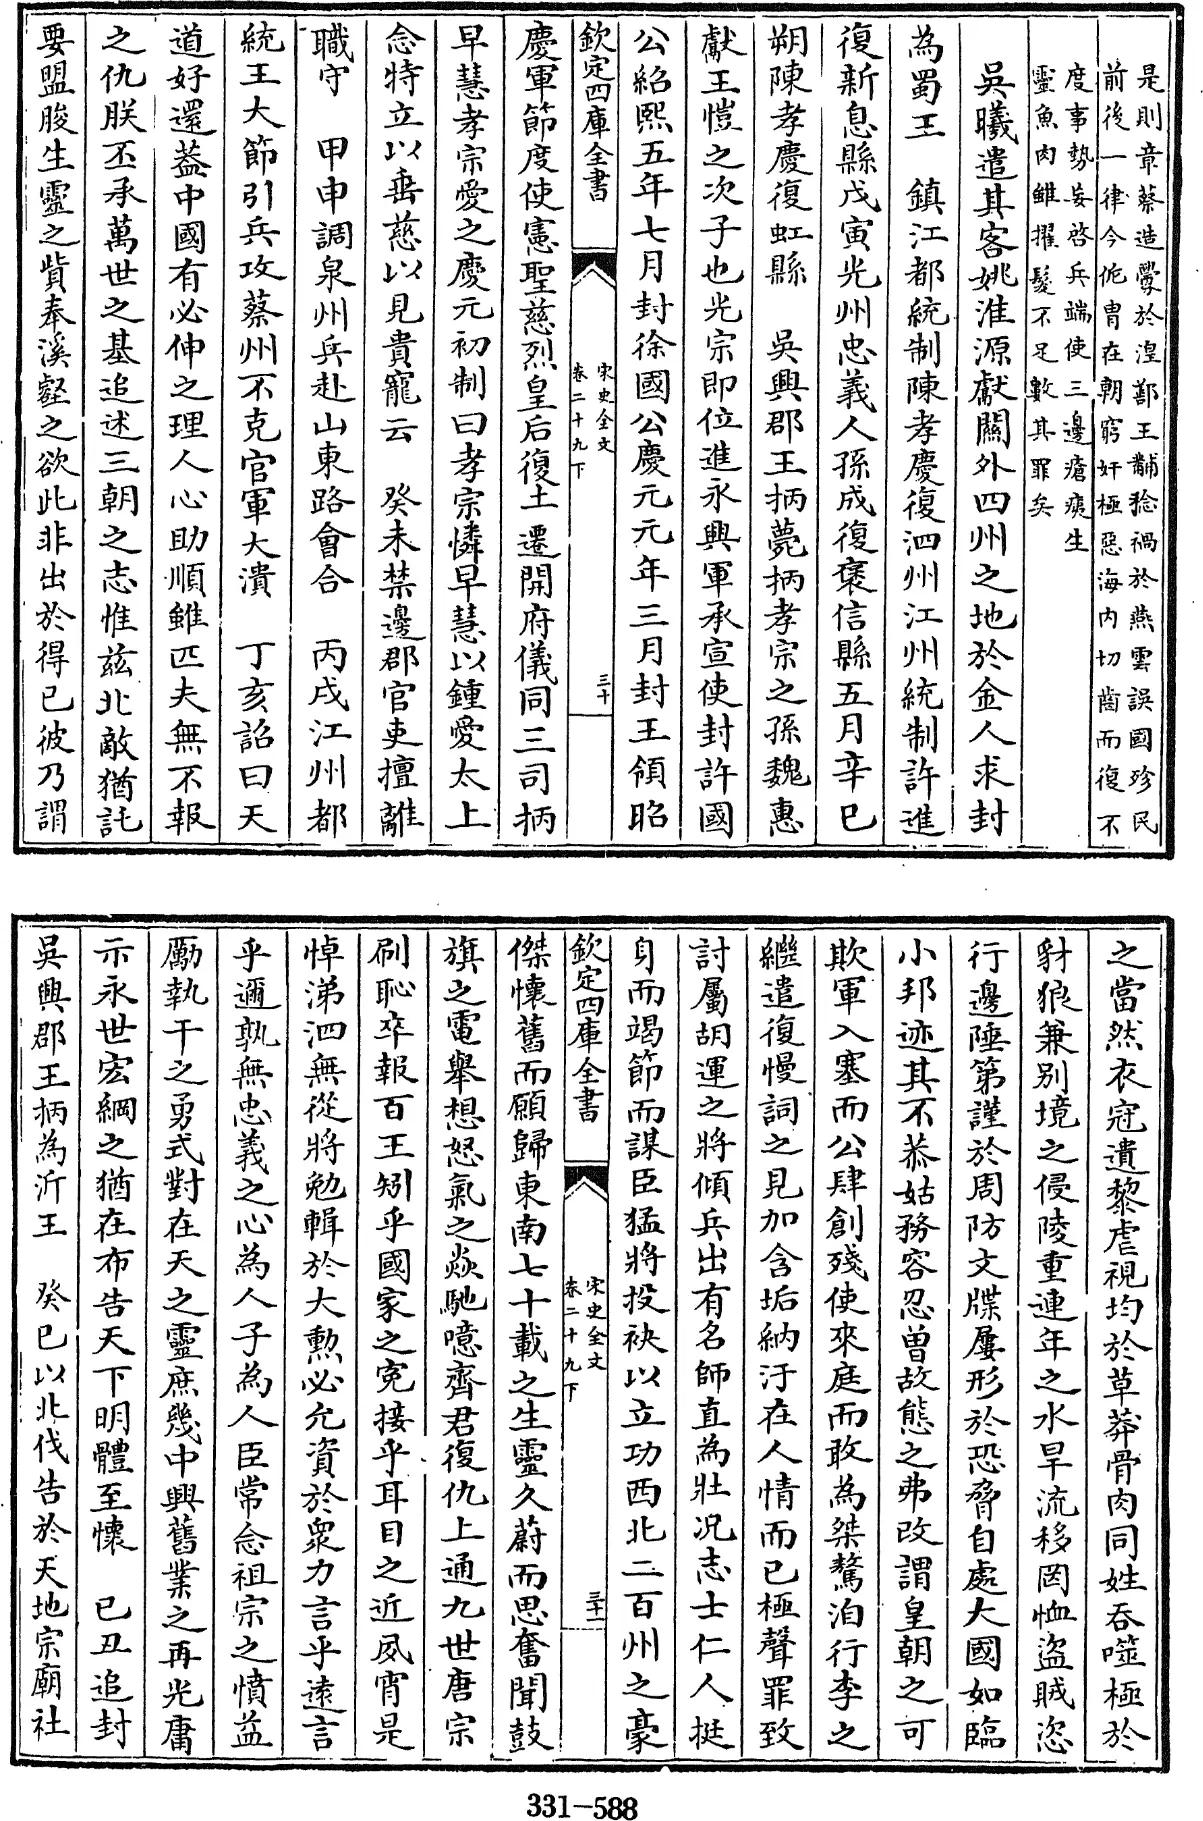 是則章蔡造釁於湟鄯王黼稔禍於燕雲誤國殄民
前後一律今侂冑在朝窮奸極惡海内切齒而復不
度事勢妄啓兵端使三邊瘡痍生
靈魚肉雖擢髮不足數其罪矣
吳曦遣其客姚淮源獻關外四州之地於金人求封
為蜀王　鎮江都統制陳孝慶復泗州江州統制許進
復新息縣戊寅光州忠義人孫成復褒信縣五月辛巳
朔陳孝慶復虹縣　吳興郡王抦薨抦孝宗之孫魏惠
獻王愷之次子也光宗即位進永興軍承宣使封許國
公紹熙五年七月封徐國公慶元元年三月封王領昭
欽定四庫全書
宋史全文
卷二十九下
三十
慶軍節度使憲聖慈烈皇后復土遷開府儀同三司抦
早慧孝宗愛之慶元初制曰孝宗憐早慧以鍾愛太上
念特立以垂慈以見貴寵云　癸未禁邊郡官吏擅離
職守　甲申調泉州兵赴山東路會合　丙戌江州都
統王大節引兵攻蔡州不克官軍大潰　丁亥詔曰天
道好還蓋中國有必伸之理人心助順雖匹夫無不報
之仇朕丕承萬世之基追述三朝之志惟茲北敵猶託
要盟朘生靈之貲奉溪壑之欲此非出於得已彼乃謂
之當然衣冠遺黎虐視均於草莽骨肉同姓吞噬極於
豺狼兼别境之侵陵重連年之水旱流移罔恤盜賊恣
行邊陲第謹於周防文牒屢形於恐脅自處大國如臨
小邦迹其不恭姑務容忍曾故態之弗改謂皇朝之可
欺軍入塞而公肆創殘使來庭而敢為桀驁洎行李之
繼遣復慢詞之見加含垢納汙在人情而已極聲罪致
討屬胡運之將傾兵出有名師直為壯况志士仁人挺
身而竭節而謀臣猛將投袂以立功西北二百州之豪
欽定四庫全書
宋史全文
卷二十九下
三十一
傑懷舊而願歸東南七十載之生靈久蔚而思奮聞鼓
旗之電舉想怒氣之焱馳噫齊君復仇上通九世唐宗
刷恥卒報百王矧乎國家之寃接乎耳目之近夙宵是
悼涕泗無從將勉輯於大勲必允資於衆力言乎逺言
乎邇孰無忠義之心為人子為人臣常念祖宗之憤益
勵執干之勇式對在天之靈庶幾中興舊業之再光庸
示永世宏綱之猶在布告天下明體至懷　己丑追封
吳興郡王抦為沂王　癸巳以北伐告於天地宗廟社
331-588